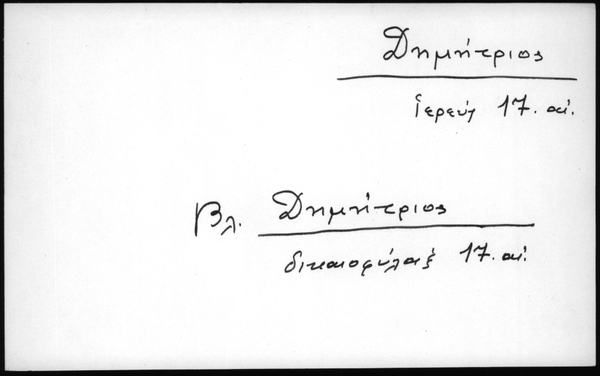 Δημήτριος
ἱερεύς 17. αἰ.
Βλ. Δημήτριος
δικαιοφύλαξ 17. αἰ.